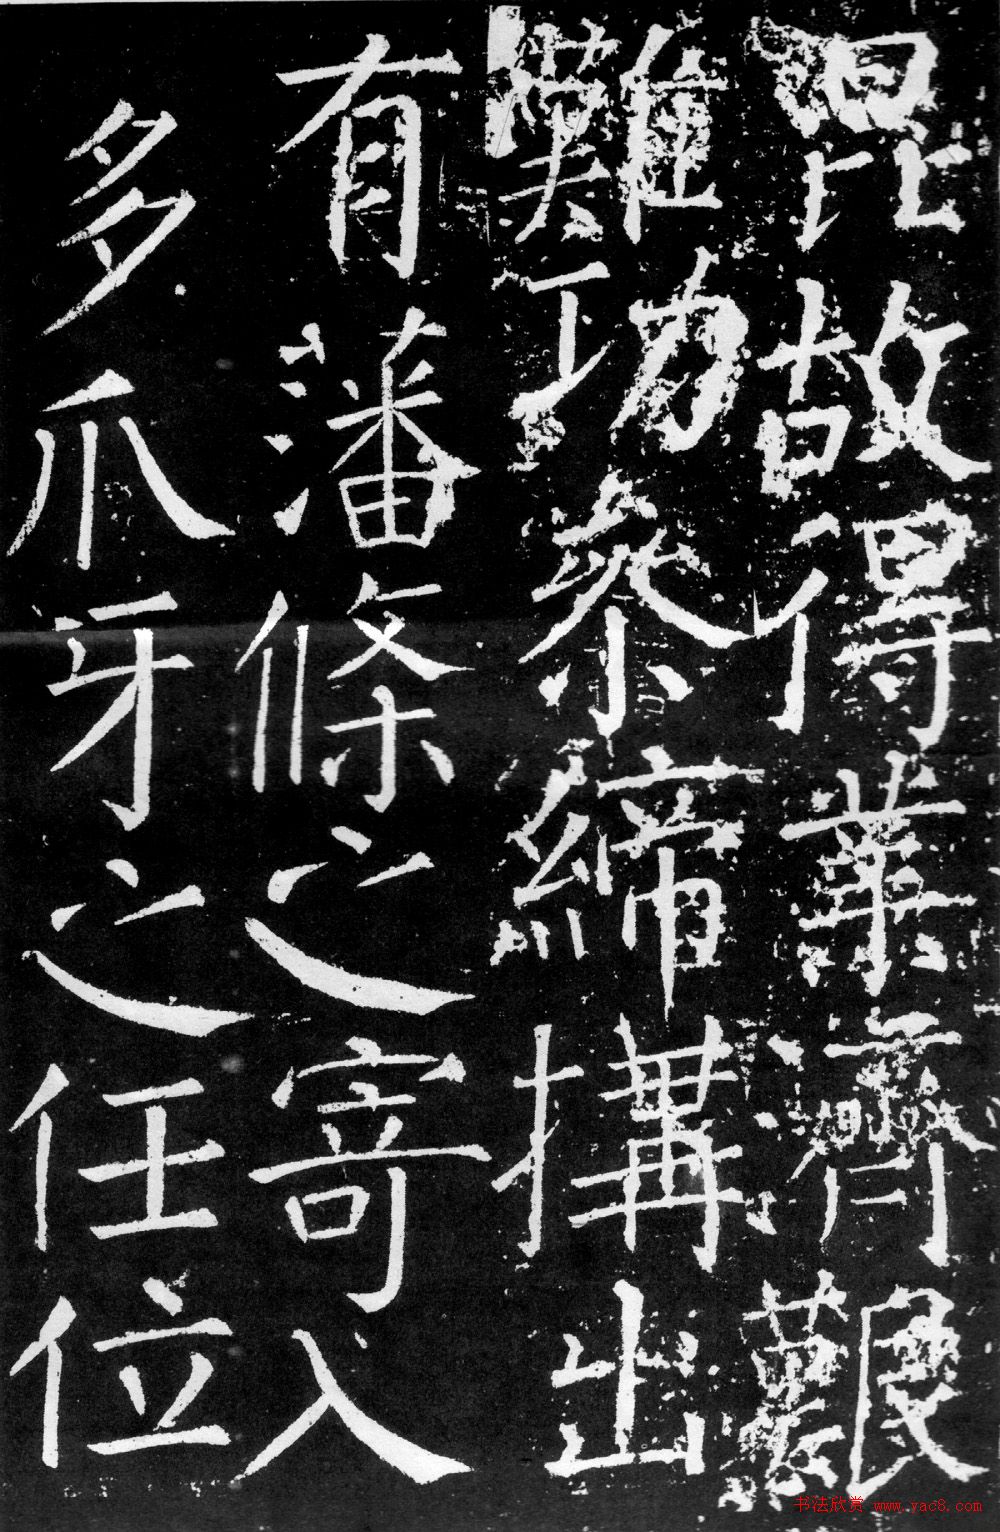 毘故得業濟艱
難功參締搆出
有藩條之寄入
多爪牙之任位
书法欣赏 www.yac8.com